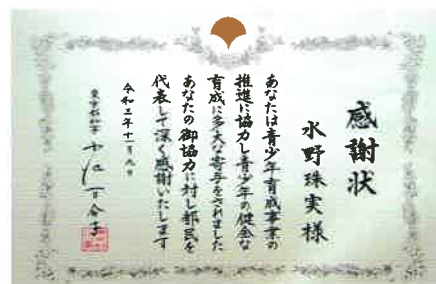 感謝状
水野珠実様
あなたは青少年育成事業の
推進に協力し青少年の健全な
育成に多大な寄与をされました
あなたの御協力に対し都民を
代表して深く感謝いたします
令和三年十一月九日
東京都知事 小池百合子